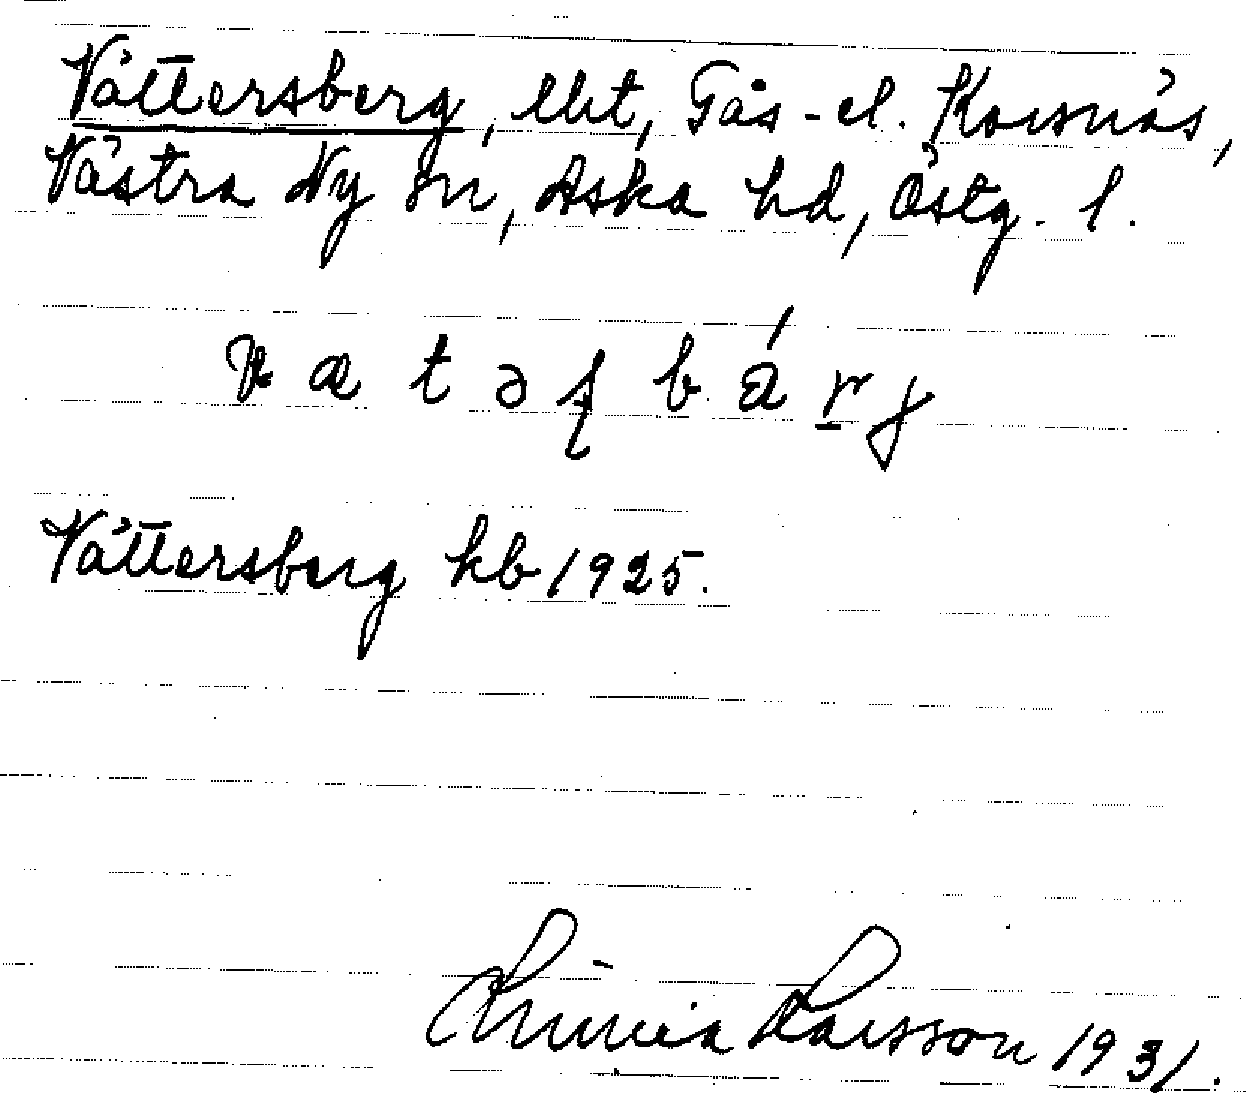 Vättersberg, lht, Gås- el. Korsnäs,
Västra Ny sn, Aska hd, Östg. l.
v æ t ə ʂ b á r j
Vättersberg kb 1925.
Linnea Larsson 1931.